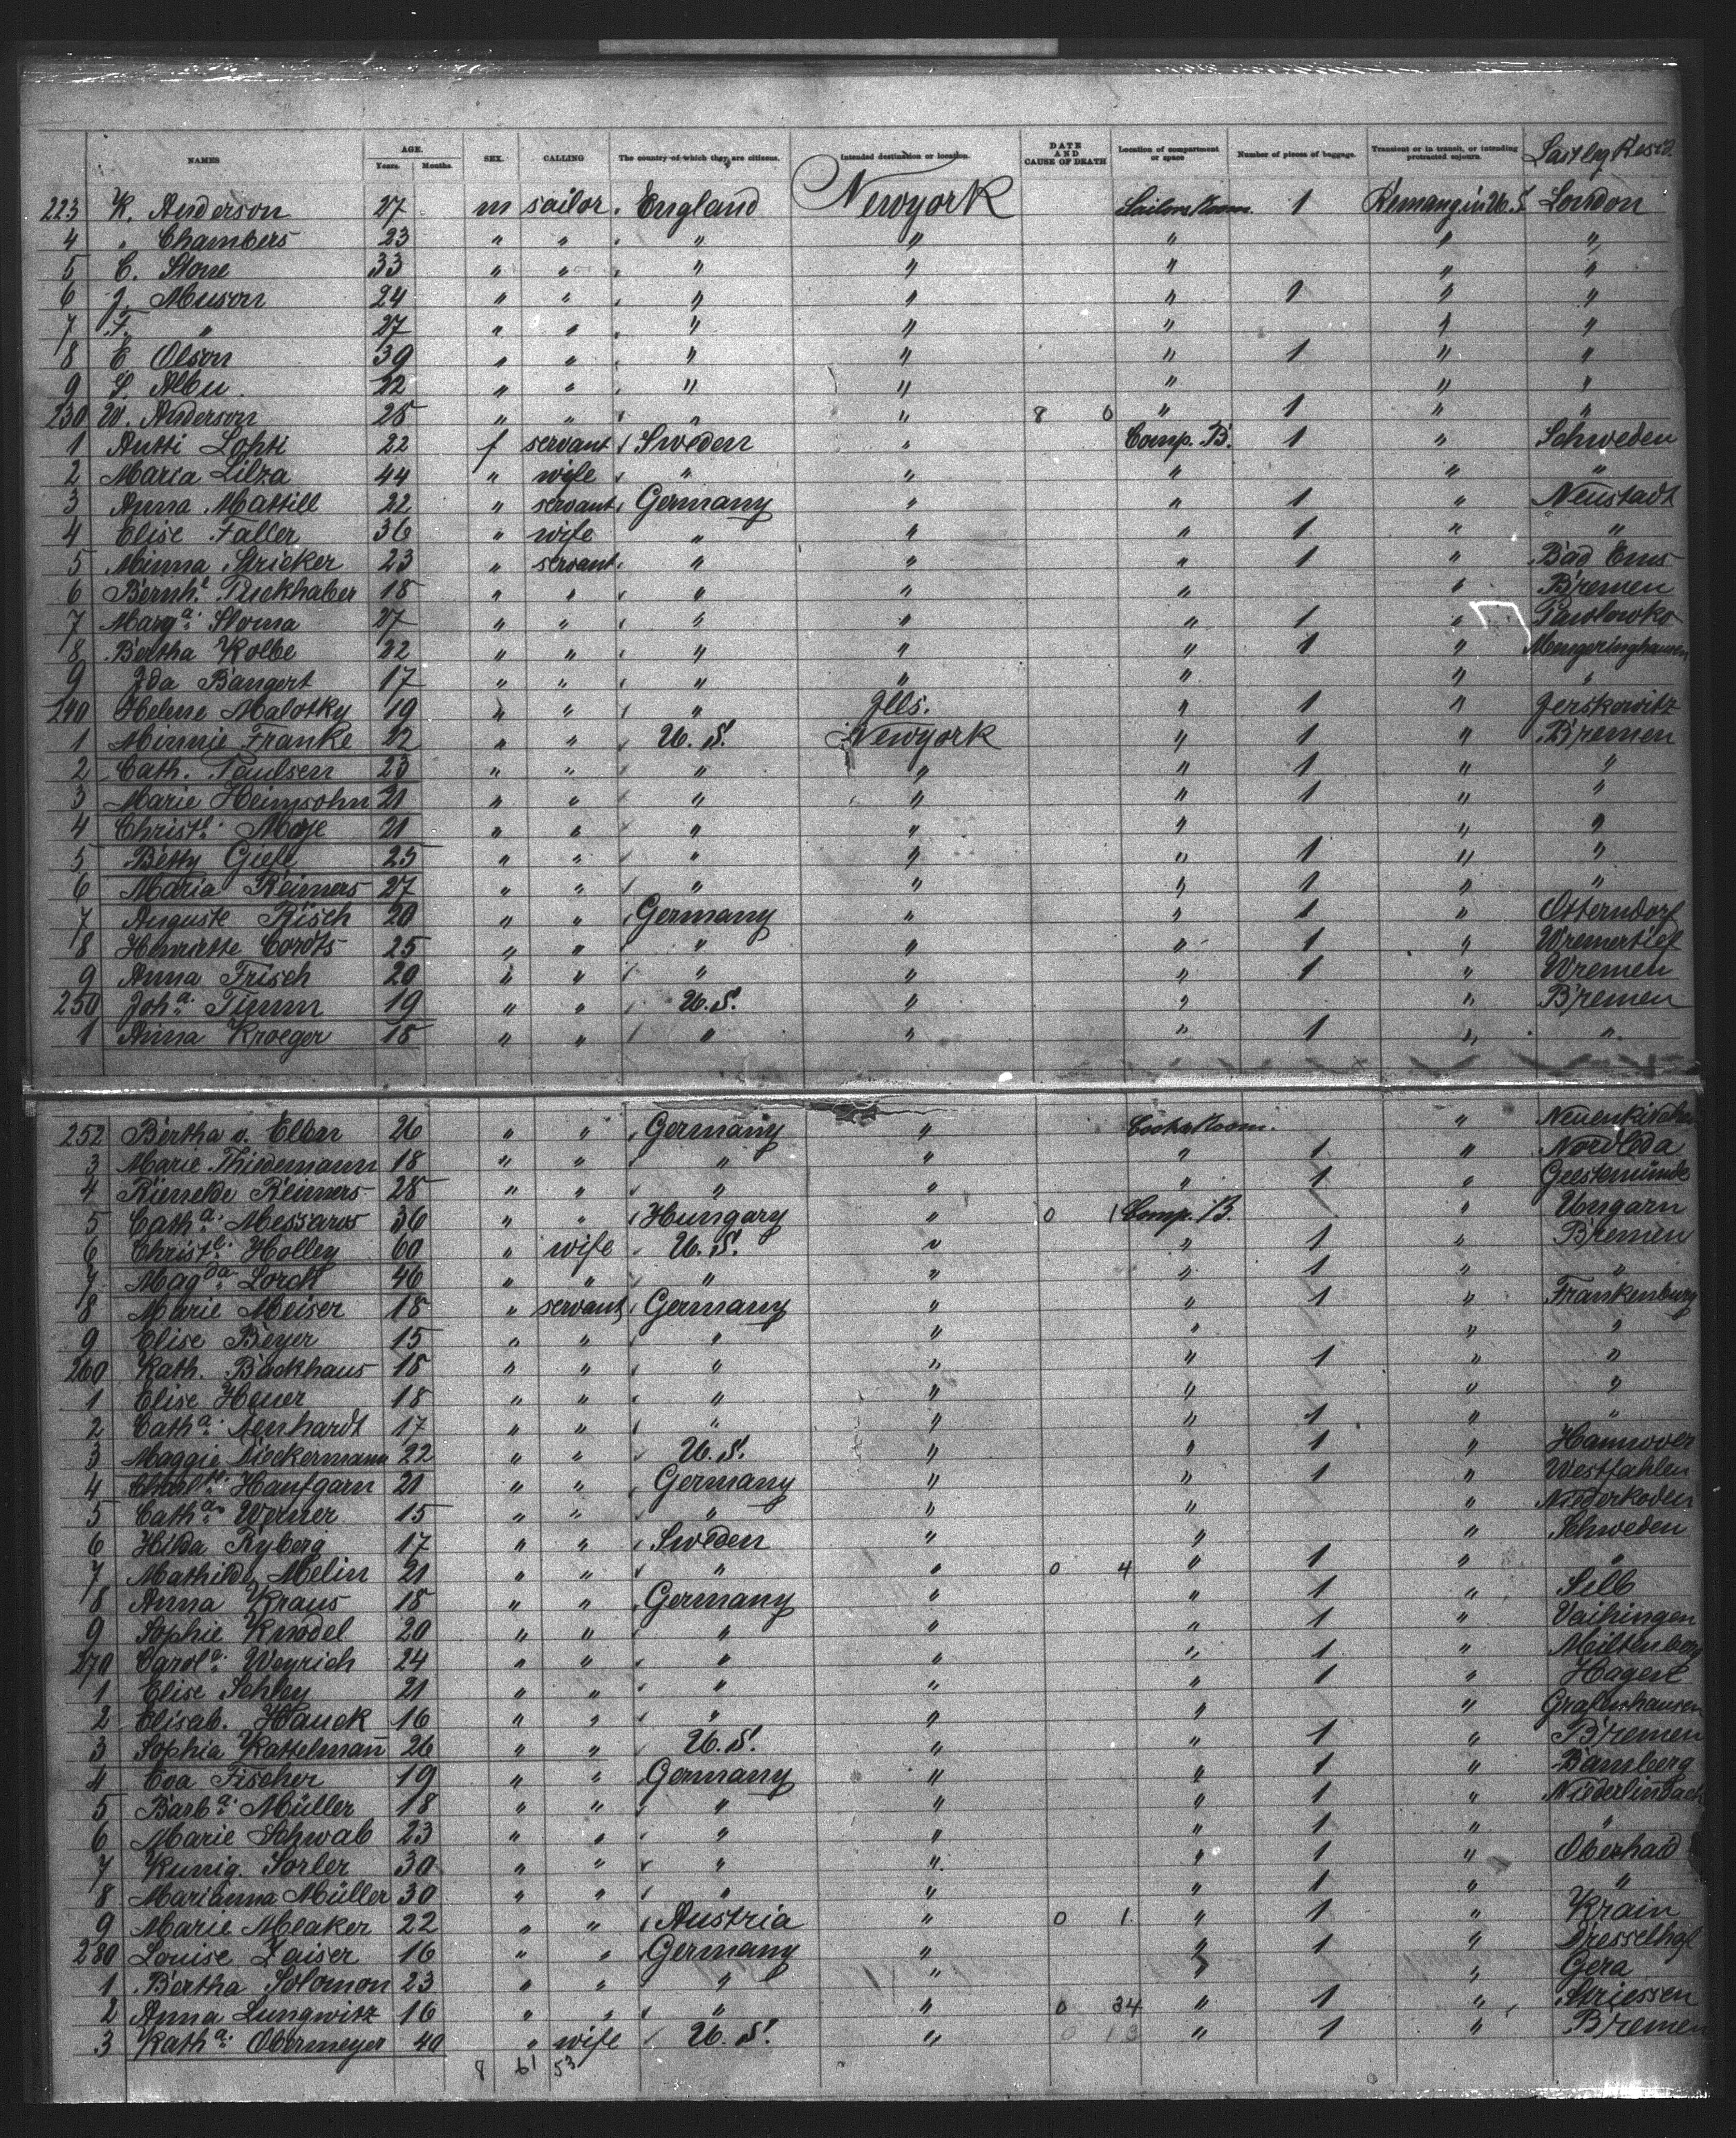 NAMES AGE. Years. Months. SEX. CALLING The country of which they are citizens. Intended destination or location. DATE AND CAUSE OF DEATH Location of compartment or space Number of pieces of baggage. Transient or in transit, or intending protracted sojourn. Lastleg Resid.
223 K. Anderson 27 m sailor England Newyork Sailors Room 1 London
4 " Chambers 23 " " " " " " "
5 C. Stone 33 " " " " " " "
6 J. Muson 24 " " " " " 1 " "
7 F. " 27 " " " " " " "
8 E Olson 39 " " " " " 1 " "
9 S. Albu 22 " " " " " " "
230 W. Anderson 28 " " " " 8 0 " 1 " "
1 Antti Lohti 22 f servant Sweden " Comp. B. 1 " Schweden
2 Maria Lilza 44 " wife " " " " "
3 Anna Mattill 22 " servant Germany " " 1 " Neustadt
4 Elise Faller 36 " wife " " " 1 " "
5 Minna Stricker 23 " servant " " " 1 " Bad Ems
6 Bernh.e Puckhaber 18 " " " " " " Bremen
7 Marg.a Sloma 27 " " " " " 1 " Pawlowko
8 Bertha Kolbe 22 " " " " " 1 " Mengeringhausen
9 Ida Bangert 17 " " " " " " "
240 Helene Malotky 19 " " " Ills. " 1 " Jerskewitz
1 Minnie Franke 22 " " U. S. Newyork " 1 " Bremen
2 Cath. Paulsen 23 " " " " " 1 " "
3 Marie Heimsohn 21 " " " " " 1 " "
4 Christ.e Moje 21 " " " " " " "
5 Betty Giese 25 " " " " " 1 " "
6 Maria Reimers 27 " " " " " 1 " "
7 Auguste Risch 20 " " Germany " " 1 " Otterndorf
8 Henriette Cordts 25 " " " " " 1 " Wremertief
9 Anna Frisch 20 " " " " " 1 " Wremen
250 Joh.a Timm 19 " " U. S. " " " Bremen
1 Anna Kroeger 18 " " " " " 1 " "
252 Bertha v. Elbn 26 " " Germany " Cooks Room. " Neuenkirchen
3 Marie Thiedemann 18 " " " " " 1 " Nordleda
4 Rienelde Reimers 28 " " " " " 1 " Geestemünde
5 Cath.a Messaros 36 " " Hungary " 0 1 Comp. B. " Ungarn
6 Christ.e Holley 60 " wife U. S. " " 1 " Bremen
7 Mag.da Lorch 46 " " " " " 1 " "
8 Marie Meiser 18 " servant Germany " " 1 " Frankenburg
9 Elise Beyer 15 " " " " " " "
260 Kath. Backhaus 18 " " " " " 1 " "
1 Elise Heuer 18 " " " " " " "
2 Cath.a Lenhardt 17 " " " " " 1 " "
3 Maggie Dieckermann 22 " " U. S. " " 1 " Hannover
4 Charl.te Hanfgarn 21 " " Germany " " 1 " Westfahlen
5 Cath.a Werner 15 " " " " " " Niederkoden
6 Hilda Ryberg 17 " " Sweden " " " Schweden
7 Mathilde Melin 21 " " " " 0 4 " 1 " "
8 Anna Kraus 18 " " Germany " " 1 " Selb
9 Sophie Knodel 20 " " " " " 1 " Vaihingen
270 Carol.e Weyrich 24 " " " " " 1 " Miltenberg
1 Elise Schley 21 " " " " " 1 " Hagert
2 Elisab. Hauck 16 " " " " " " Grafenhausen
3 Sophia Kattelmann 26 " " U. S. " " 1 " Bremen
4 Eva Fischer 19 " " Germany " " 1 " Bamberg
5 Barb.a Müller 18 " " " " " 1 " Niederlindach
6 Marie Schwab 23 " " " " " 1 " "
7 Kunig. Sorler 30 " " " " " 1 " Oberhaid
8 Marianna Müller 30 " " " " " 1 " "
9 Marie Mlaker 22 " " Austria " 0 1 " 1 " Krain
280 Louise Zaiser 16 " " Germany " " 1 "
1 Bertha Solomon 23 " " " " " " Gera
2 Anna Lungwitz 16 " " " " 0 34 " 1 " Striessen
3 Kath.a Obermeyer 40 " wife U. S. " 0 13 " 1 " Bremen
8 61 53